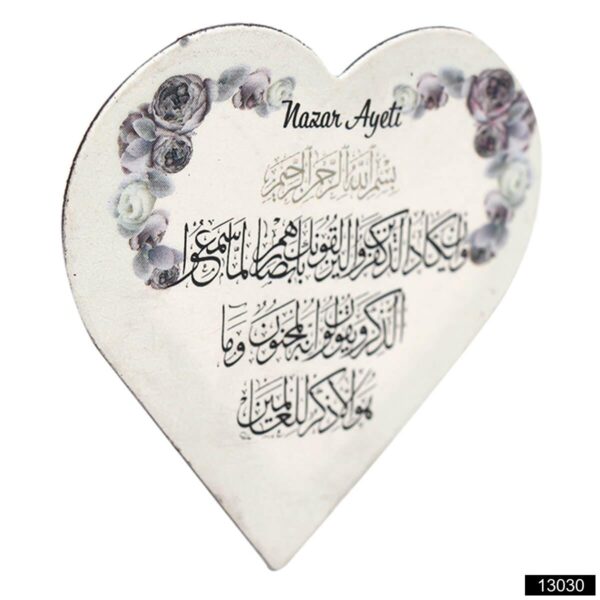 Nazar Ayeti
بسم الله الرحمن الرحيم
وان يكاد الذين كفروا ليزلقونك بابصارهم لما سمعوا
الذكر ويقولون انه لمجنون وما
هو الا ذكر للعالمين
13030